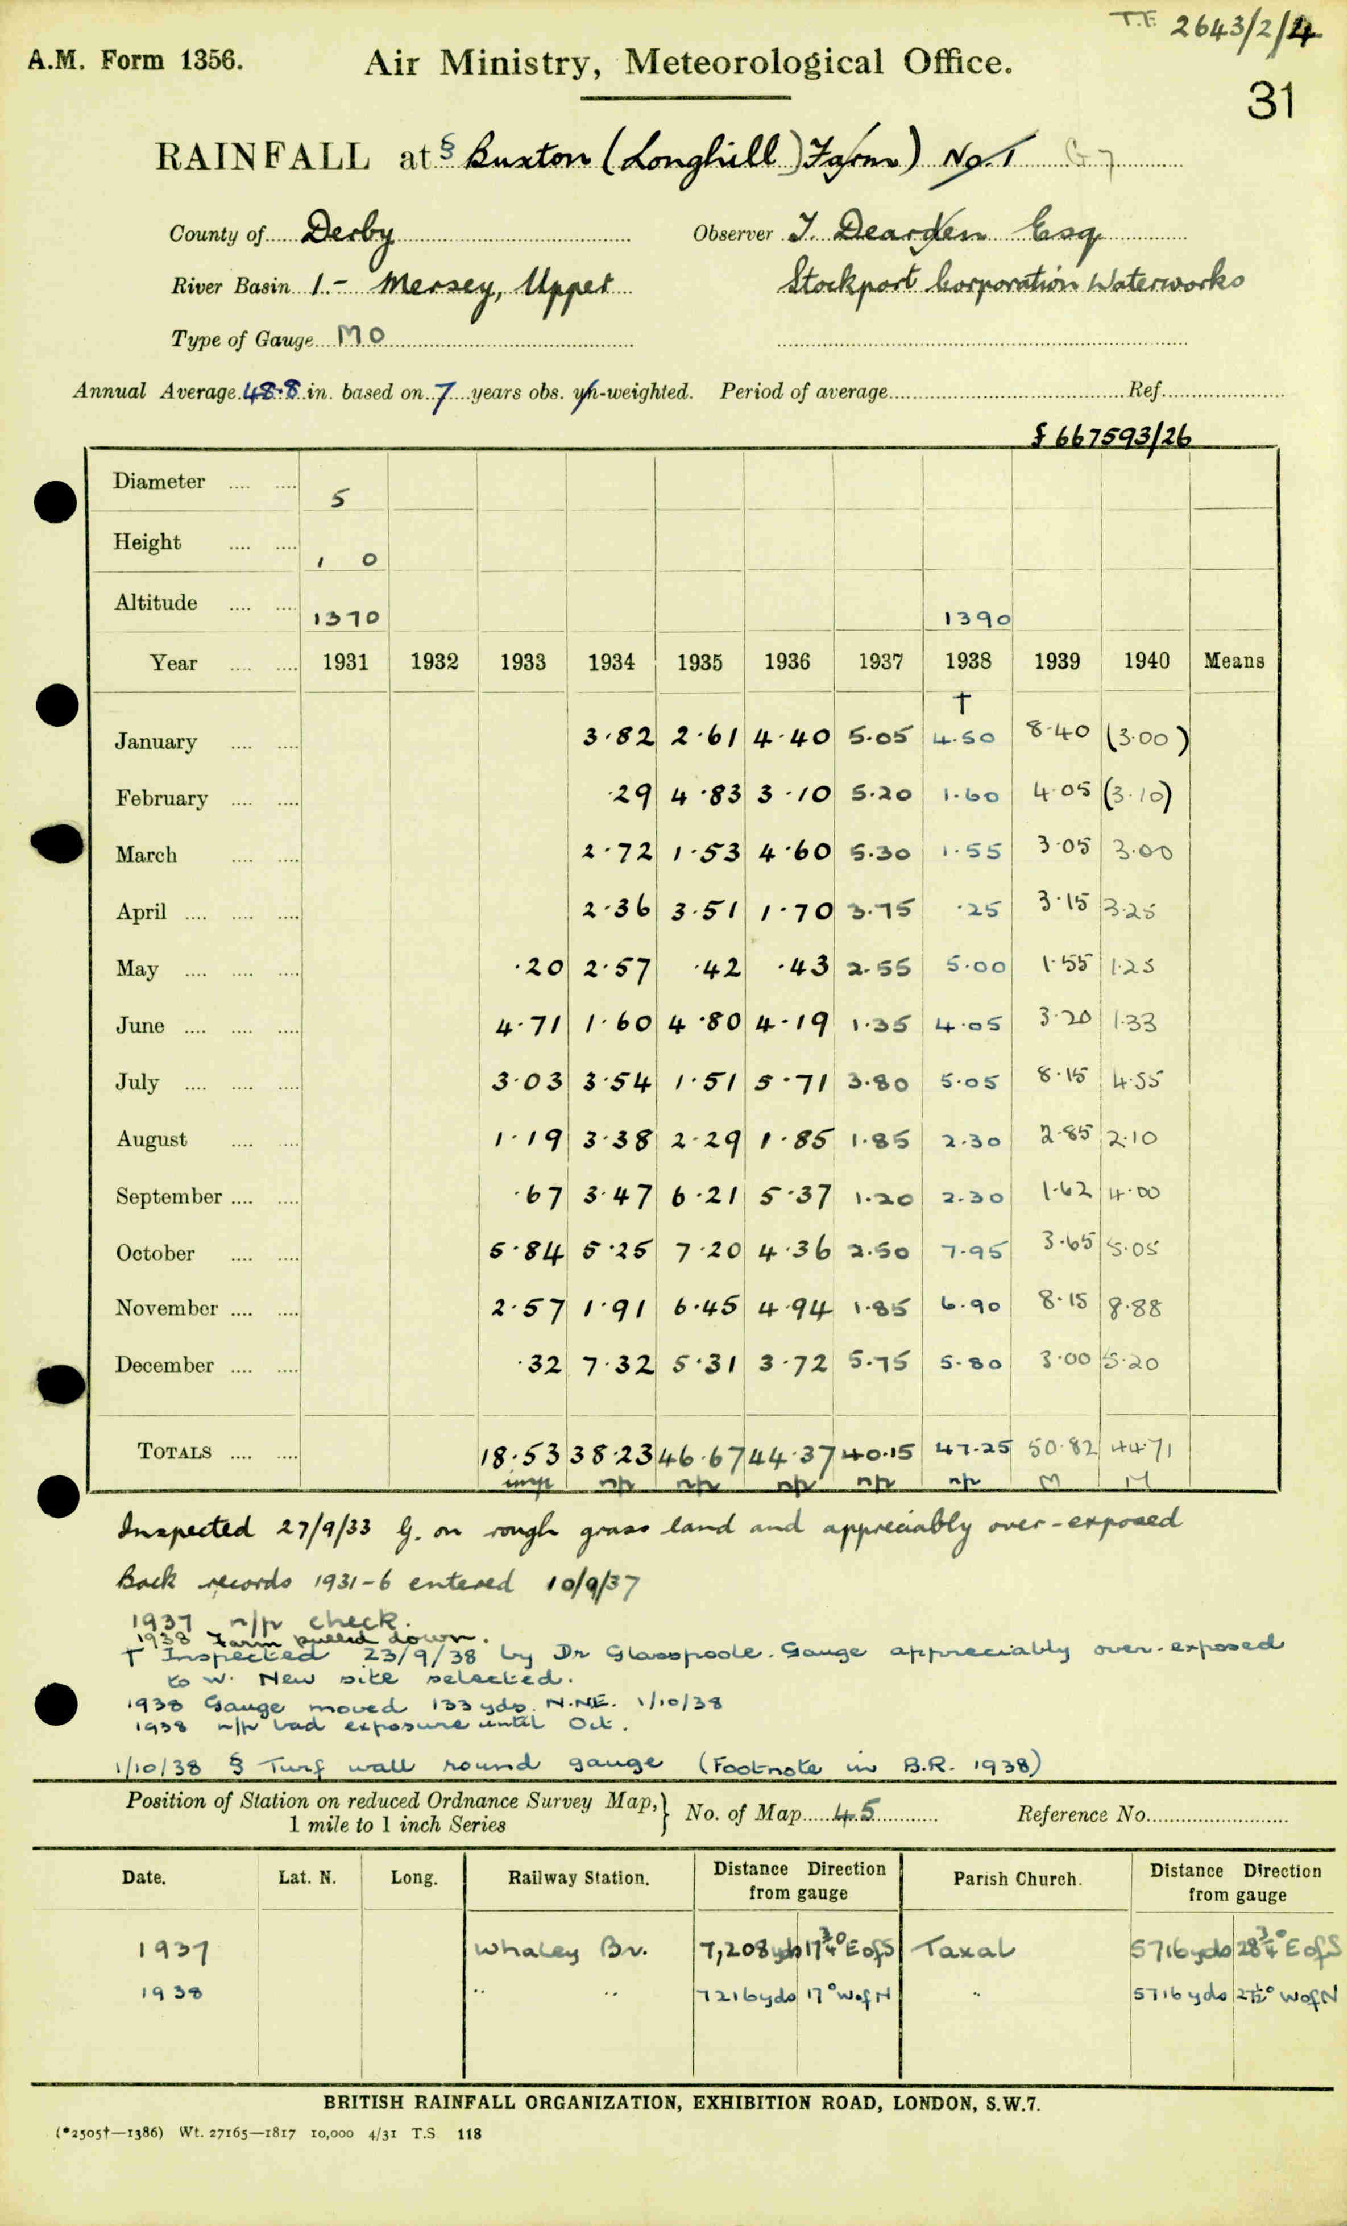 T.F. 2643/2/4
A.M. Form 1356. Air Ministry, Meteorological Office.
31
RAINFALL at § Buxton (Longhill) Farm) No. 1 G7
County of Derby Observer J. Dearden Esq
River Basin 1.- Mersey, Upper Stockport Corporation Waterworks
Type of Gauge MO
Annual Average 48.8 in. based on 7 years obs. un-weighted. Period of average Ref.
§ 667593/26
Diameter 5
Height 1 0
Altitude 1370 1390
Year 1931 1932 1933 1934 1935 1936 1937 1938 1939 1940 Means
†
January 3.82 2.61 4.40 5.05 4.50 8.40 (3.00)
February .29 4.83 3.10 5.20 1.60 4.05 (3.10)
March 2.72 1.53 4.60 5.30 1.55 3.05 3.00
April 2.36 3.51 1.70 3.75 .25 3.15 3.25
May .20 2.57 .42 .43 2.55 5.00 1.55 1.25
June 4.71 1.60 4.80 4.19 1.35 4.05 3.20 1.33
July 3.03 3.54 1.51 5.71 3.80 5.05 8.15 4.55
August 1.19 3.38 2.29 1.85 1.85 2.30 2.85 2.10
September .67 3.47 6.21 5.37 1.20 2.30 1.62 4.00
October 5.84 5.25 7.20 4.36 2.50 7.95 3.65 5.05
November 2.57 1.91 6.45 4.94 1.85 6.90 8.15 8.88
December .32 7.32 5.31 3.72 5.75 5.80 3.00 5.20
TOTALS 18.53 38.23 46.67 44.37 40.15 47.25 50.82 44.71
imp n/p n/p n/p n/p n/p M M
Inspected 27/9/33 G. on rough grass land and appreciably over-exposed
Back records 1931-6 entered 10/9/37
1937 n/p check.
1938 Farm pulled down.
† Inspected 23/9/38 by Dr Glasspoole. Gauge appreciably over-exposed
to W. New site selected.
1938 Gauge moved 133 yds. N.NE. 1/10/38
1938 n/p bad exposure until Oct.
1/10/38 § Turf wall round gauge (Footnote in B.R. 1938)
Position of Station on reduced Ordnance Survey Map, 1 mile to 1 inch Series } No. of Map 45 Reference No.
Date. Lat. N. Long. Railway Station. Distance Direction from gauge Parish Church. Distance Direction from gauge
1937 Whaley Br. 7,208 yds 17¾° E of S Taxal 5716 yds 28¾° E of S
1938 " " 7216 yds 17° W of N " 5716 yds 27½° W of N
BRITISH RAINFALL ORGANIZATION, EXHIBITION ROAD, LONDON, S.W.7.
(*2505†—1386) Wt. 27165—1817 10,000 4/31 T.S 118